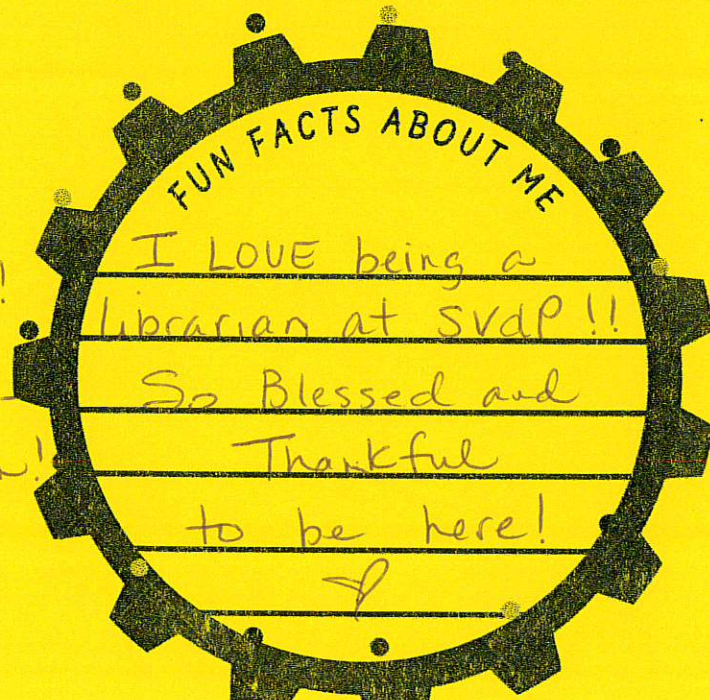 FUN FACTS ABOUT ME
I LOVE being a
librarian at SVdP!!
So Blessed and
Thankful
to be here!